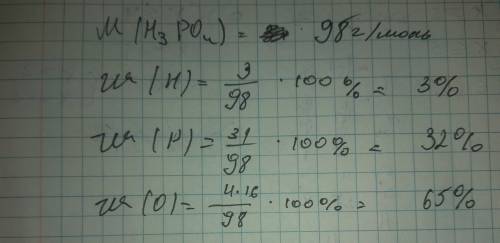 M (H₃PO₄) = 98 г/моль
ω (H) = 3/98 · 100% = 3%
ω (P) = 31/98 · 100% = 32%
ω (O) = 4·16/98 · 100% = 65%